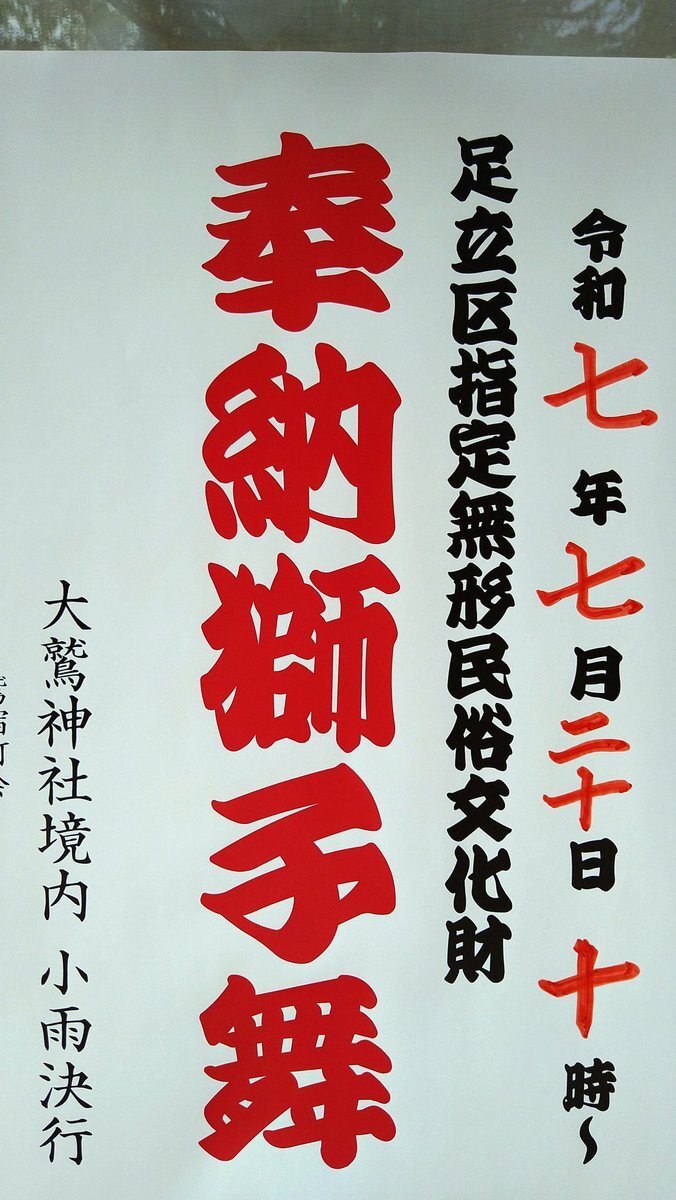 令和七年七月二十日十時～
足立区指定無形民俗文化財
奉納獅子舞
大鷲神社境内 小雨決行